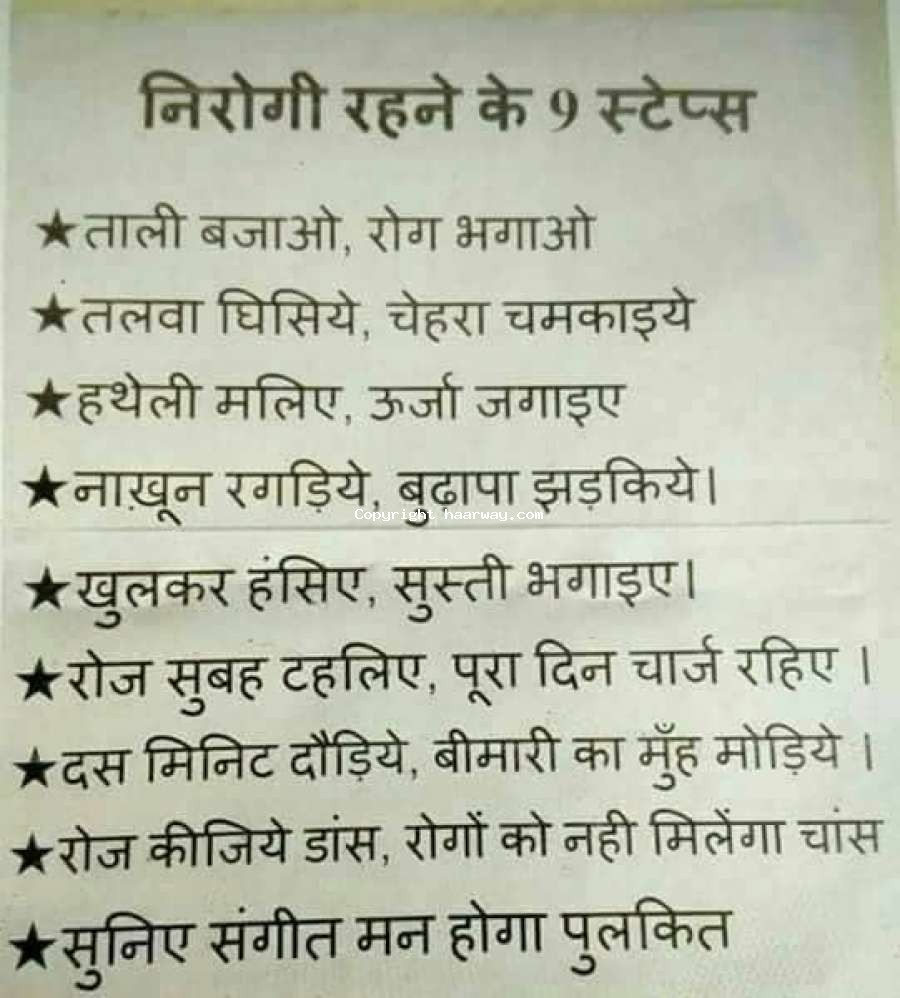 निरोगी रहने के 9 स्टेप्स
★ताली बजाओ, रोग भगाओ
★तलवा घिसिये, चेहरा चमकाइये
★हथेली मलिए, ऊर्जा जगाइए
★नाख़ून रगड़िये, बुढापा झड़किये।
Copyright haarway.com
★खुलकर हंसिए, सुस्ती भगाइए।
★रोज सुबह टहलिए, पूरा दिन चार्ज रहिए ।
★दस मिनिट दौड़िये, बीमारी का मुँह मोड़िये ।
★रोज कीजिये डांस, रोगों को नही मिलेंगा चांस
★सुनिए संगीत मन होगा पुलकित